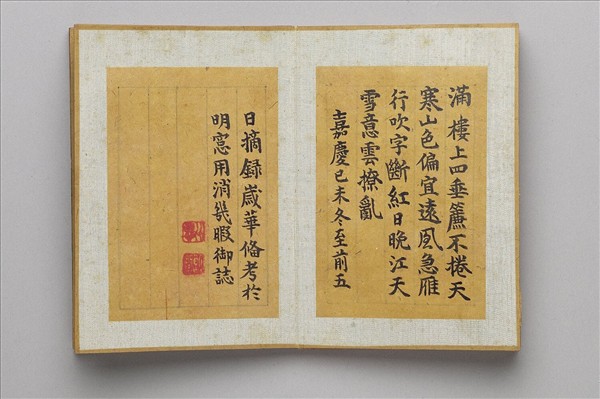 滿樓上四垂簾不捲天
寒山色偏宜遠風急雁
行吹字斷紅日晚江天
雪意雲撩亂
嘉慶己未冬至前五
日摘録歲華偹考於
明窓用消幾暇御誌